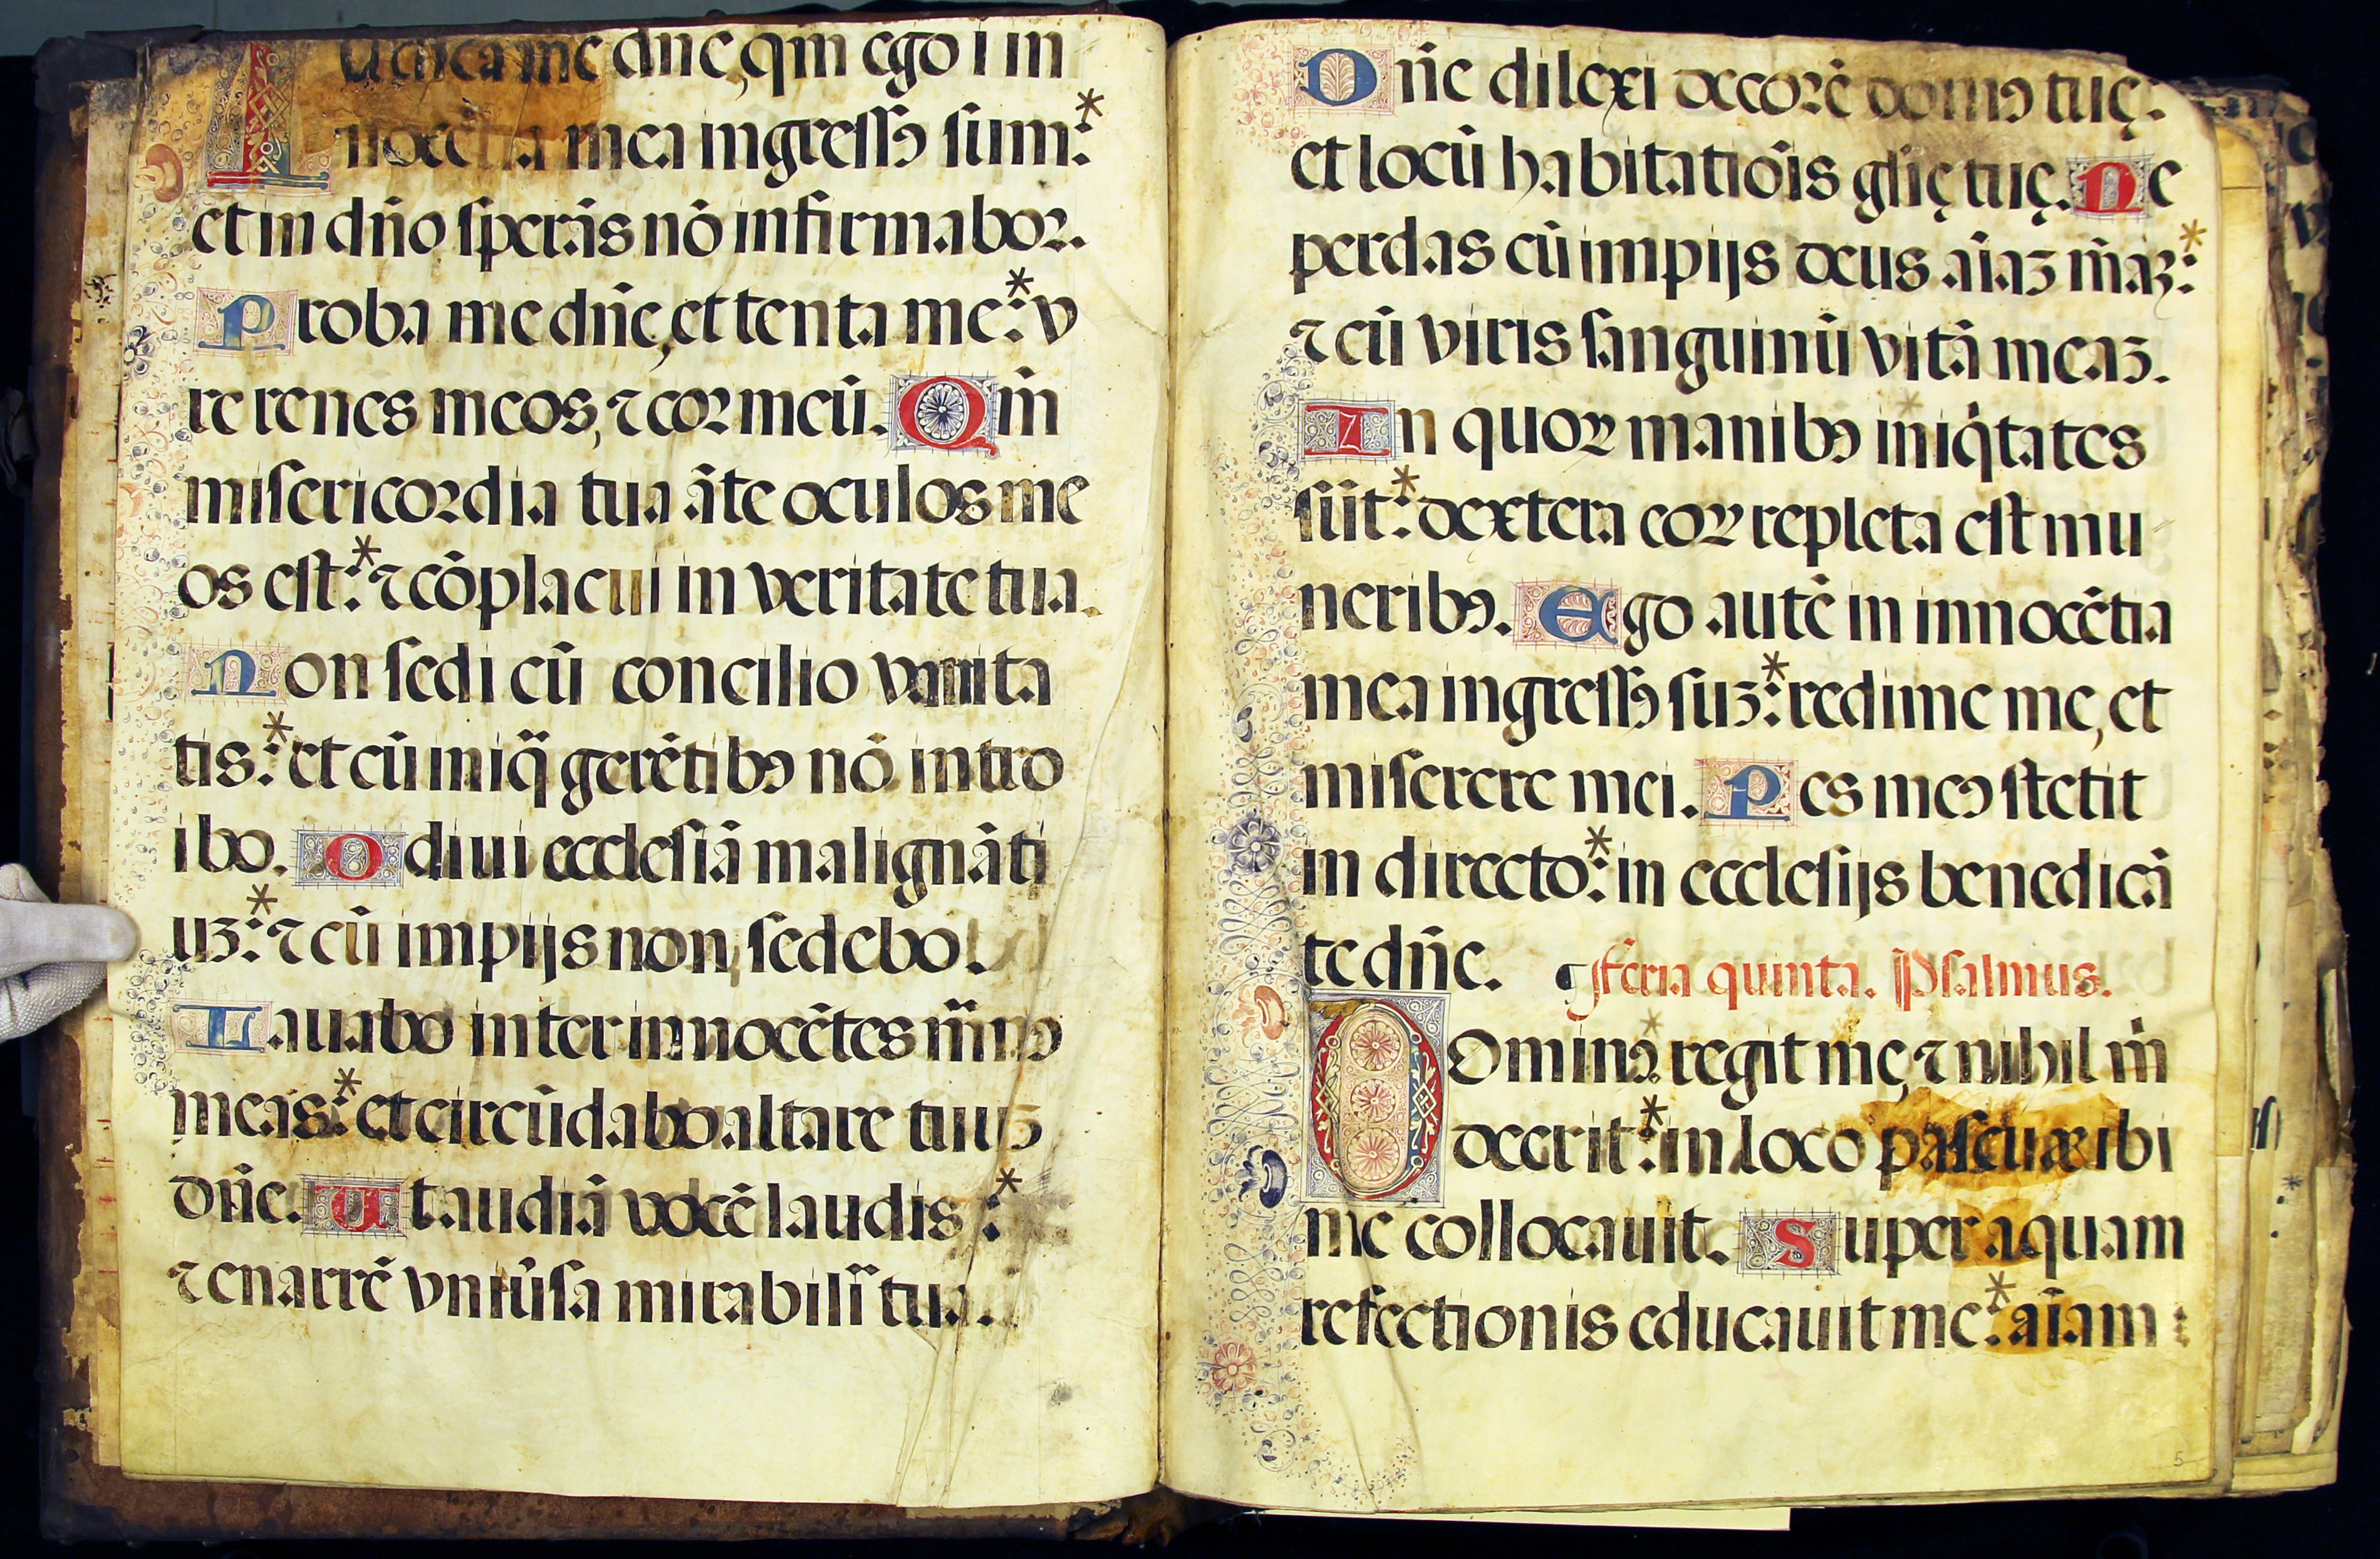 Iudica me dñe, qm̃ ego ĩ in
nocẽtia mea ingressꝰ sum:*
et in dño sperãs nõ infirmabor.
Proba me dñe, et tenta me:* v
re renes meos, ⁊ cor meũ. Qm̃
misericordia tua ãte oculos me
os est:* ⁊ cõplacui in veritate tua.
Non sedi cũ concilio vanita
tis:* et cũ iniq̃ gerẽtibꝰ nõ intro
ibo. Odiui ecclesiã malignãti
uꝫ:* ⁊ cũ impijs non sedebo.
Lauabo inter innocẽtes mãnꝰ
meas:* et circũdabo altare tuuꝫ
dñe. Ut audiã vocẽ laudis:*
⁊ enarrẽ vniũsa mirabilĩa tua.
Dñe dilexi decorẽ domꝰ tuę:
et locũ habitatiõis glĩę tuę. Ne
perdas cũ impijs deus aĩaꝫ mẽaꝫ:*
⁊ cũ viris sanguinũ vitã meaꝫ.
In quoꝝ manibꝰ iniq̃tates
sũt:* dextera eoꝝ repleta est mu
neribꝰ. Ego autẽ in innocẽtia
mea ingressꝰ suꝫ:* redime me, et
miserere mei. Pes meꝰ stetit
in directo:* in ecclesijs benedicã
te dñe. ¶ Feria quinta. Psalmus.
Dominꝰ regit me, ⁊ nihil m̃
deerit:* in loco pascuæ ibi
me collocauit. Super aquam
refectionis educauit me:* aĩam
5